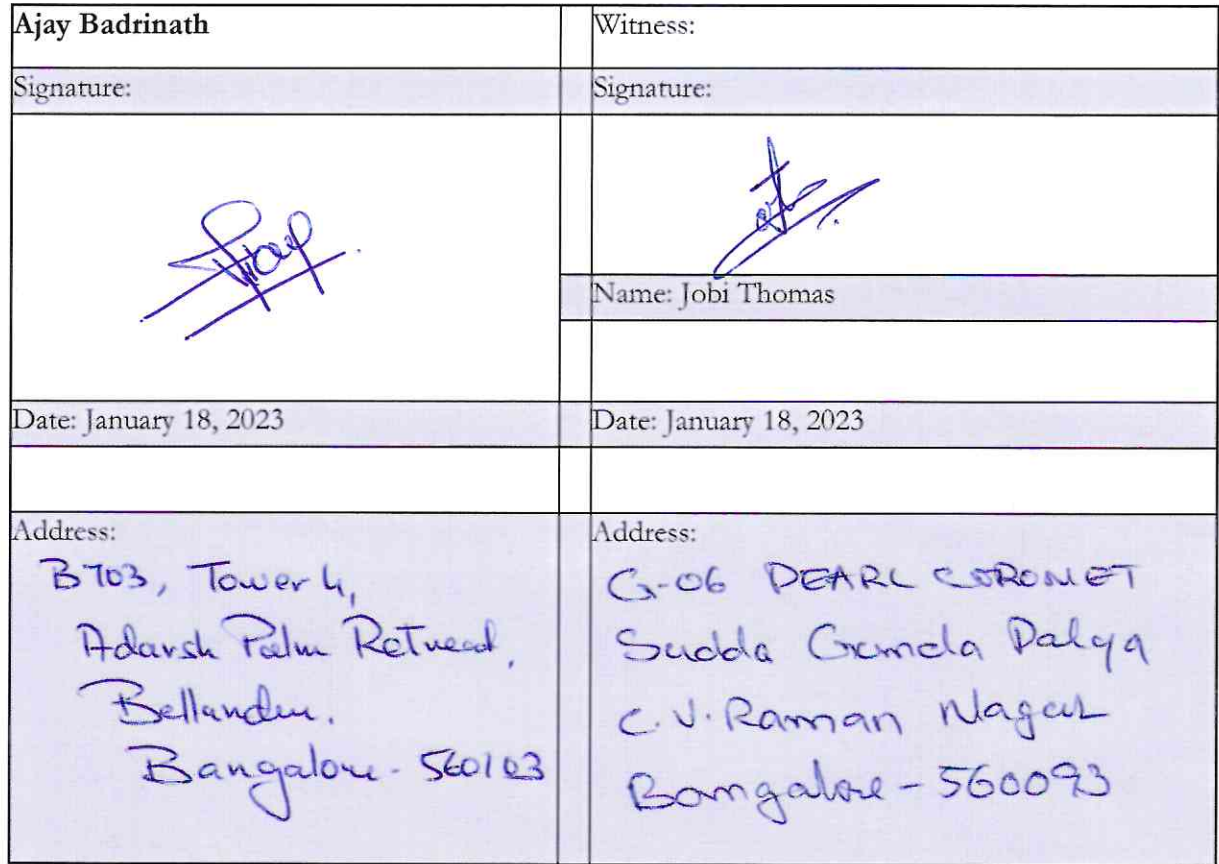 Ajay Badrinath
Witness:
Signature:
Signature:
Name: Jobi Thomas
Date: January 18, 2023
Date: January 18, 2023
Address:
B703, Tower 4,
Adarsh Palm Retreat,
Bellandur.
Bangalore - 560103
Address:
G-06 PEARL CORONET
Sudda Gunda Palya
C.V. Raman Nagar
Bangalore - 560093